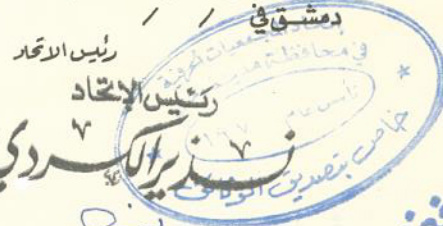 دمشق في / /
رئيس الاتحاد
رئيس الاتحاد
نذير الكردي
في محافظة
تأسس عام ١٩٦٧
خاص بتصديق الوثائق